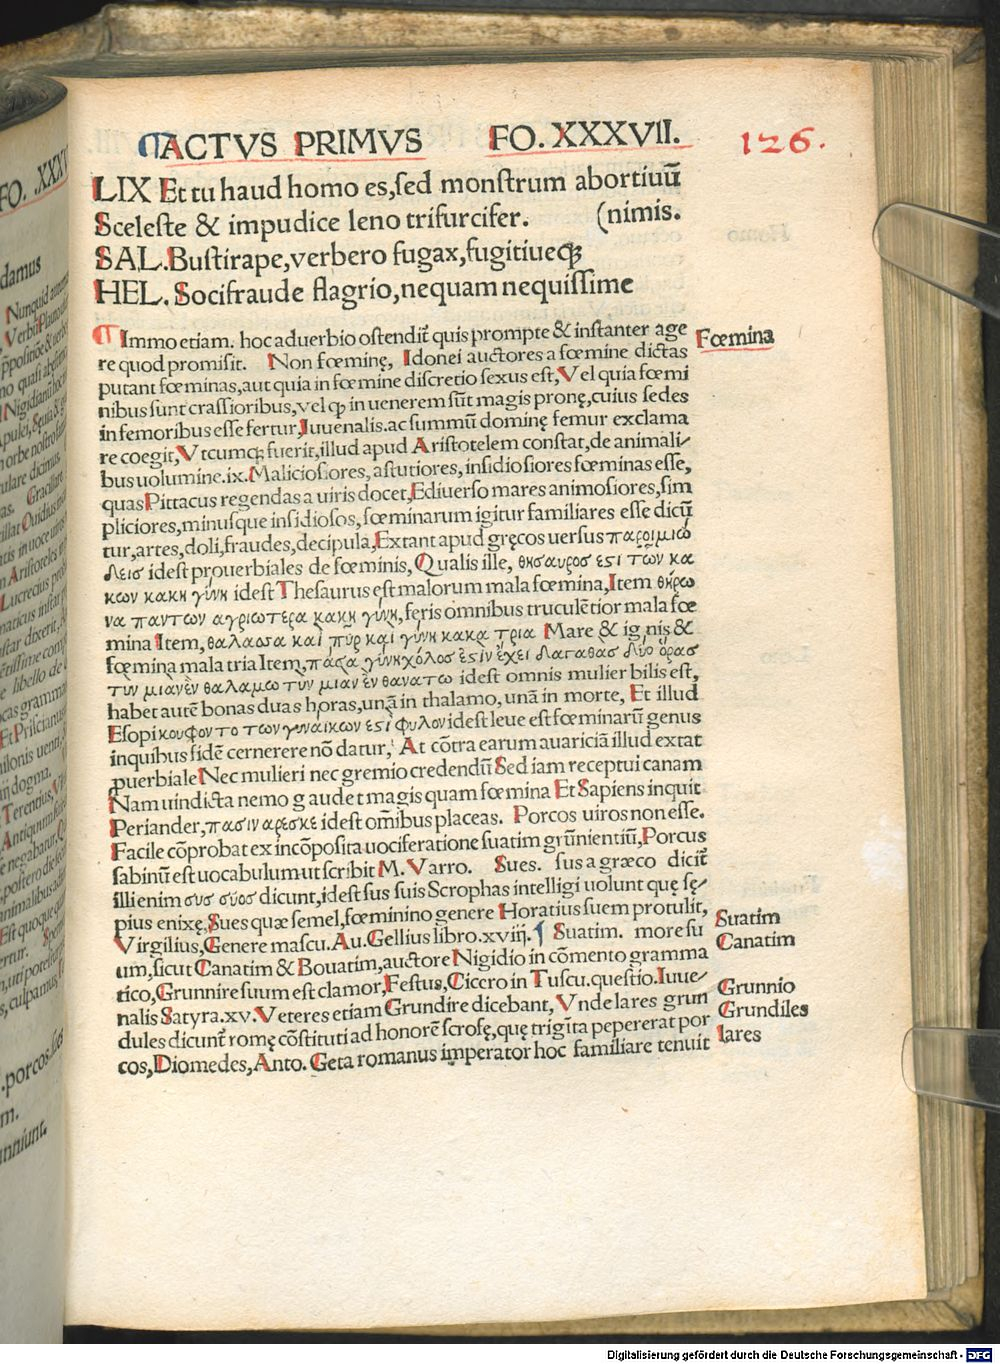 ¶ACTVS PRIMVS FO. XXXVII. 126.
LIX Et tu haud homo es,sed monstrum abortiuū
Sceleste & impudice leno trifurcifer. (nimis.
SAL. Bustirape,verbero fugax,fugitiueq́
HEL. Socifraude flagrio,nequam nequissime
¶ Immo etiam. hoc aduerbio ostendit̄ quis prompte & instanter age
re quod promisit. Non fœminę, Idonei auctores a fœmine dictas
putant fœminas,aut quia in fœmine discretio sexus est,Vel quia fœmi
nibus sunt crassioribus,vel ꝙ in uenerem sūt magis pronę,cuius sedes
in femoribus esse fertur,Iuuenalis.ac summū dominę femur exclama
re coegit,Vtcumq; fuerit,illud apud Aristotelem constat,de animali⸗
bus uolumine.ix.Maliciosiores,astutiores,insidiosiores fœminas esse,
quas Pittacus regendas a uiris docet,Ediuerso mares animosiores,sim
pliciores,minusque insidiosos,fœminarum igitur familiares esse dicū
tur,artes,doli,fraudes,decipula,Extant apud gręcos uersus παροιμιω
δεισ idest prouerbiales de fœminis,Qualis ille, θησαυροσ εσι των κα
κων κακη γύνη idest Thesaurus est malorum mala fœmina,Item θηρω
να παντων αγριωτερα κακη γύνη,feris omnibus truculētior mala fœ
mina Item,θαλαωσα καὶ πῦρ καὶ γύνη κακα τρια Mare & ignis &
fœmina mala tria Item,πάσα γύνηχόλοσ ἐσὶν ἐχει δαγαθασ δύο ὁρασ
τὺν μιανἐν θαλαμω τὺν μιαν ἐν θανατω idest omnis mulier bilis est,
habet autē bonas duas horas,unā in thalamo, unā in morte, Et illud
Esopi κουφον το των γυναικων εσι φυλον idest leue est fœminarū genus
inquibus fidē cernerere nō datur, At cōtra earum auariciā illud extat
puerbiale Nec mulieri nec gremio credendū Sed iam receptui canam
Nam uindicta nemo gaudet magis quam fœmina Et Sapiens inquit
Periander,πασιν αρεσκε idest om̄ibus placeas. Porcos uiros non esse.
Facile cōprobat ex incōposita uociferatione suatim grūnientiū,Porcus
sabinū est uocabulum ut scribit M. Varro. Sues. sus a græco dicit̄
illi enim συσ σύοσ dicunt,idest sus suis Scrophas intelligi uolunt quę sę⸗
pius enixę,Sues quæ semel,fœminino genere Horatius suem protulit,
Virgilius,Genere mascu. Au. Gellius libro.xviij.¶ Suatim. more su
um,sicut Canatim & Bouatim,auctore Nigidio in cōmento gramma
tico,Grunnire suum est clamor,Festus,Cicero in Tuscu.questio.Iuue⸗
nalis Satyra.xv.Veteres etiam Grundire dicebant, Vnde lares grun
dules dicunt̄ romę cōstituti ad honorē scrofę,quę trigīta pepererat por
cos,Diomedes,Anto. Geta romanus imperator hoc familiare tenuit
Fœmina
Suatim
Canatim
Grunnio
Grundiles
lares
FO. XXX
damus
Nunquid
Digitalisierung gefördert durch die Deutsche Forschungsgemeinschaft - DFG